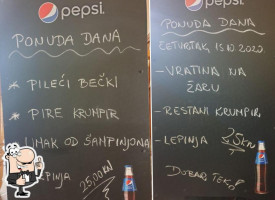 pepsi.
PONUDA DANA
* PILEĆI BEČKI
* PIRE KRUMPIR
UMAK OD ŠAMPINJONA
LEPINJA
25,00 KN
pepsi.
PONUDA DANA
ČETVRTAK, 15.10.2020.
- VRATINA NA
ŽARU
- RESTANI KRUMPIR,
- LEPINJA 25KN
DOBAR TEK!